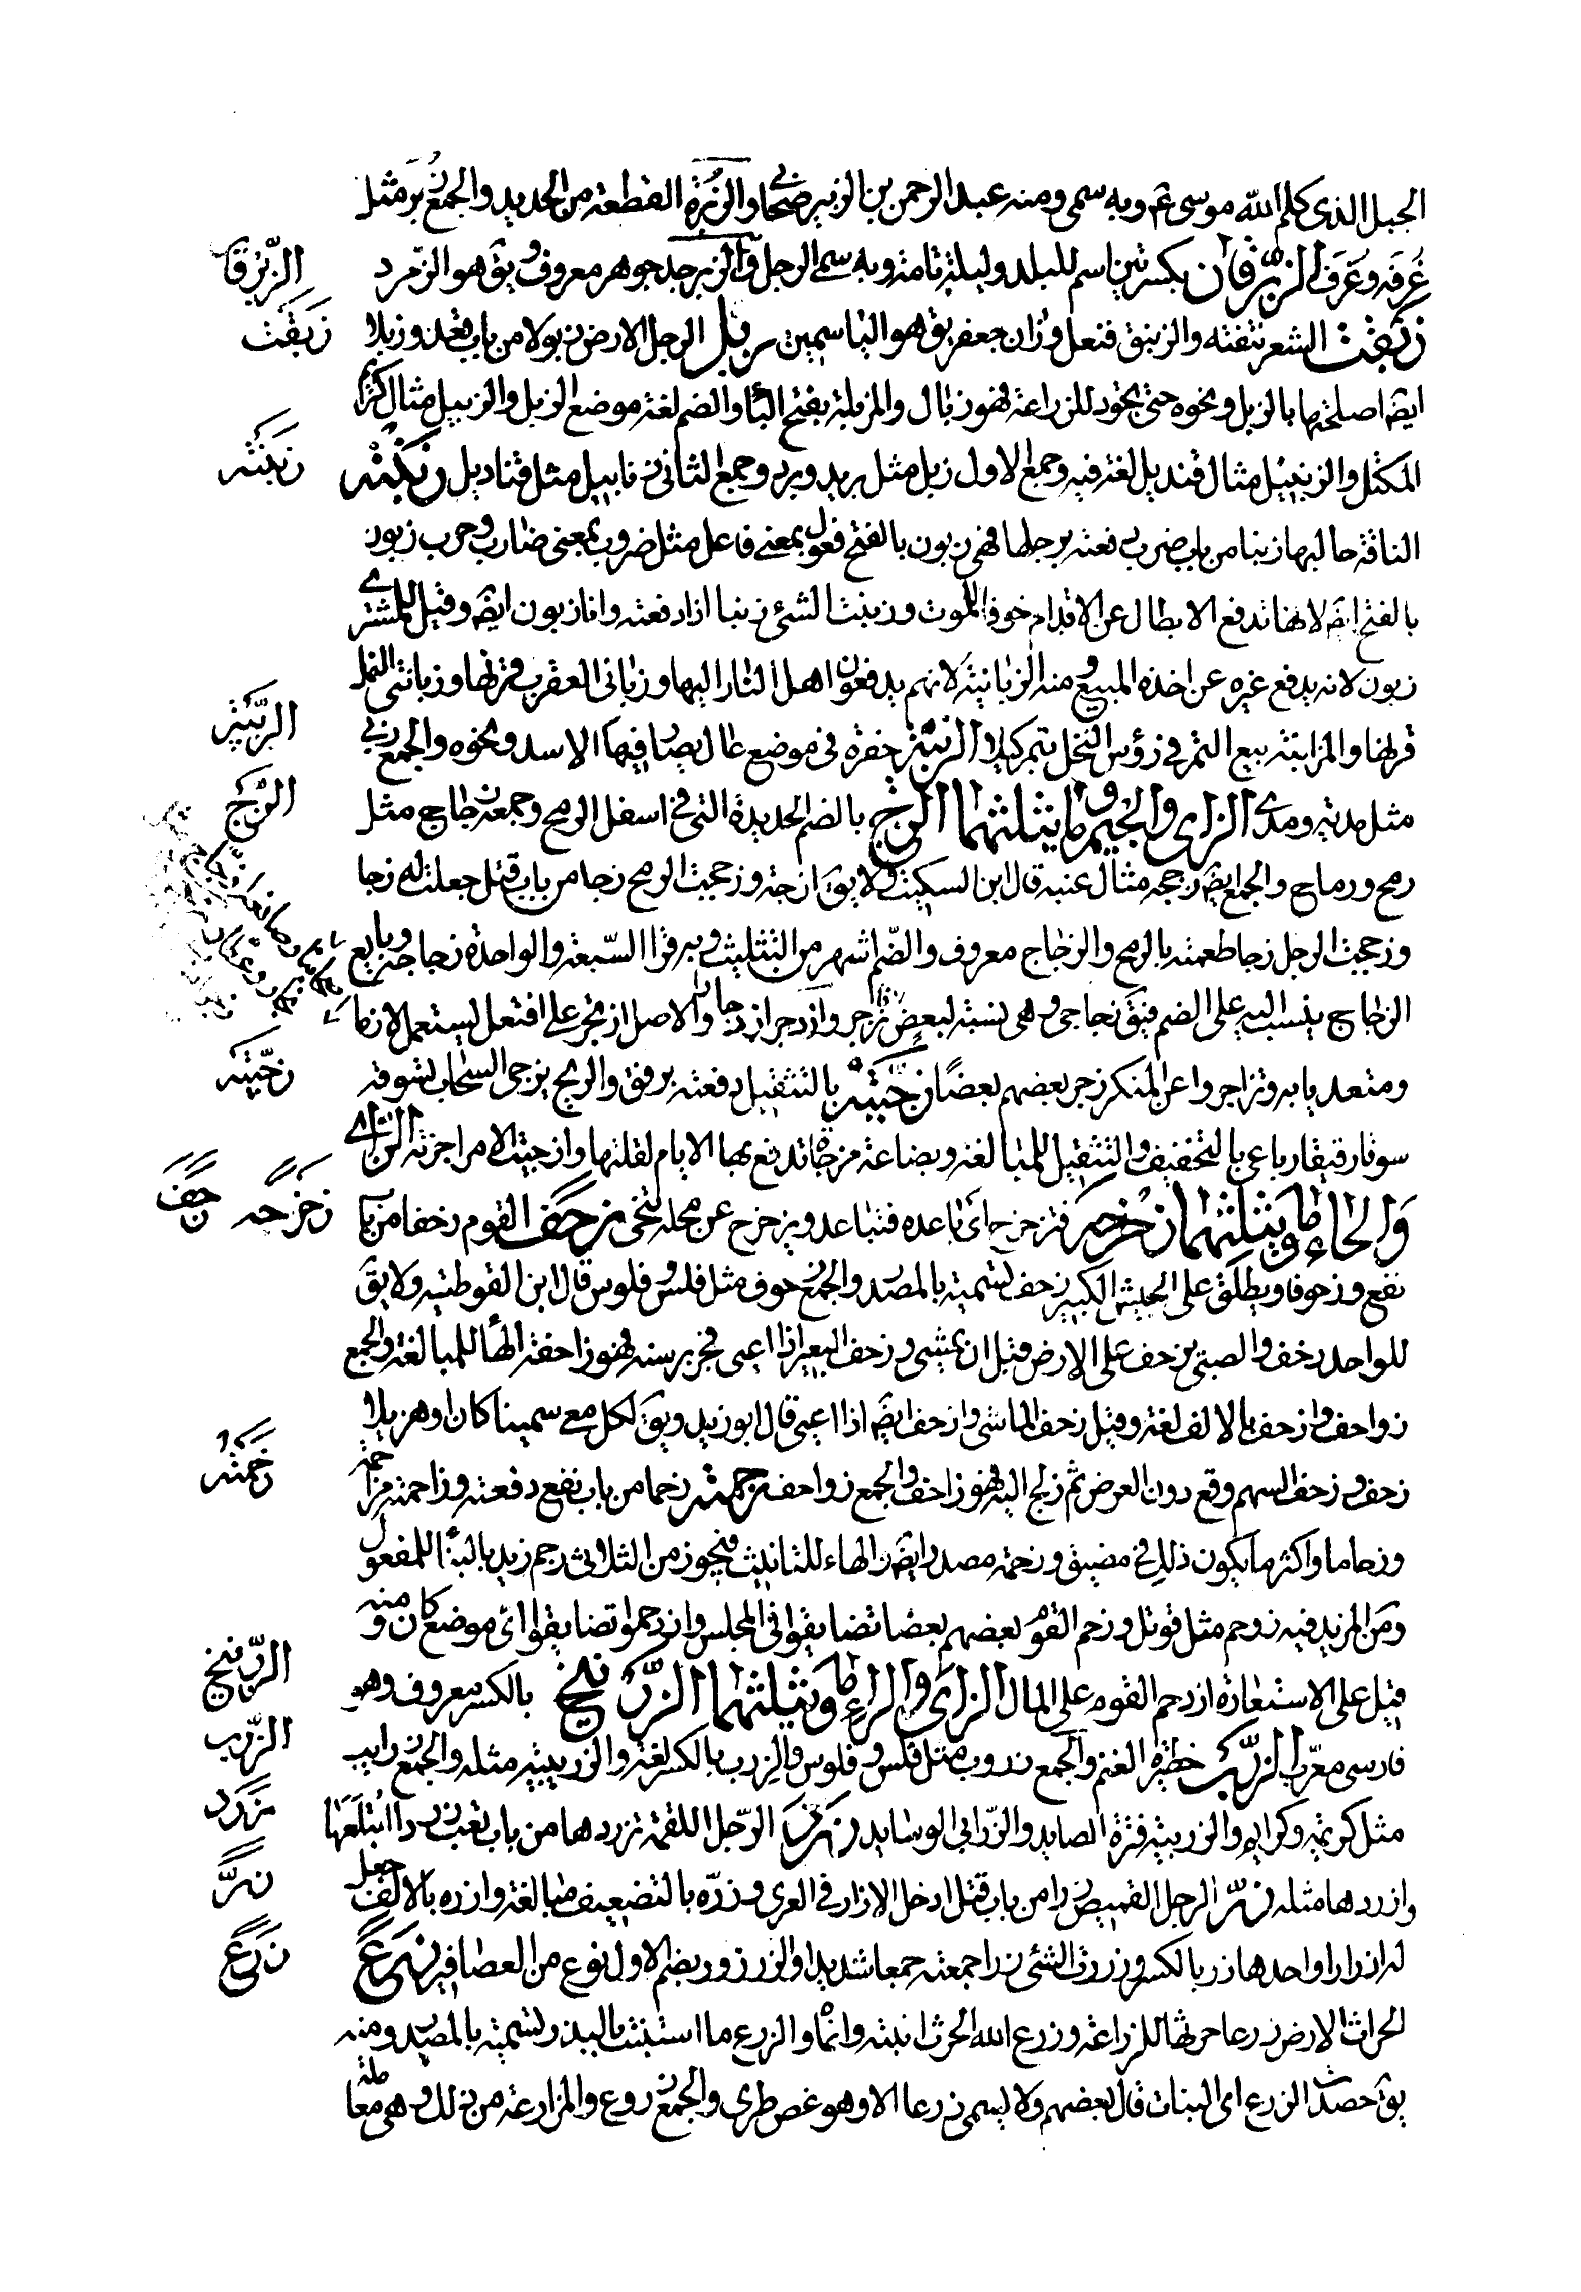 الجبل الذى كلم الله موسى عم وبه سمى ومنه عبد الرحمن بن الزبير صحابى والزبرة القطعة من الحديد والجمع زبر مثل
غرفة وغرف الزبرقان بكسرتين اسم للبدر ليلة تمامه وبه سمى الرجل والزبرجد جوهر معروف ويق هو الزمرد
زبقت الشعر نتفته والزنبق فنعل وزان جعفر يق هو الياسمين زبل الرجل الارض زبولا من باب قعد وزبلا
ايضه اصلحتها بالزبل ونحوه حتى تجود للزراعة فهو زبال والمزبلة بفتح الباء والضم لغة موضع الزبل والزبيل مثال كريم
المكتل والزنبيل مثال قنديل لغة فيه وجمع الاول زبل مثل بريد وبرد وجمع الثانى زنابيل مثل قناديل زبنته
الناقة حالبها زبنا من باب ضرب دفعته برجلها فهى زبون بالفتح فعول بمعنى فاعل مثل ضروب بمعنى ضارب وحرب زبون
بالفتح ايضه لانها تدفع الابطال عن الاقدام خوف الموت وزبنت الشئ زبنا اذا دفعته وانا زبون ايضه وقيل للمشترى
زبون لانه يدفع غيره عن اخذه المبيع ومنه الزبانية لانهم يدفعون اهل النار اليها وزبانى العقرب قرنها وزبانتى النمل
قرنها والمزابنة بيع التمر فى رؤس النخل بتمر كيلا الزبية حفرة فى موضع عال يصاد فيها الاسد ونحوه والجمع زبى
مثل مدية ومدى الزاى والجيم وما يثلثهما الزج بالضم الحديدة التى فى اسفل الرمح وجمعه زجاج مثل
رمح ورماح والجمع ايضه زججه مثال عنبه قال ابن السكيت ولا يق ازجه وزججت الرمح زجا من باب قتل جعلت له زجا
وزججت الرجل زجا طعنته بالزج والزجاج معروف والضم اشهر من التثليث وبه قرا السبعة والواحدة زجاجة وبايع
الزجاج ينسب اليه على الضم فيق زجاجى وهى نسبة لبعض زجر وازدجر ازدجارا والاصل ازتجر على افتعل يستعمل لازما
ومتعديا به وتزاجروا عن المنكر زجر بعضهم بعضا زجيته بالتثقيل دفعته برفق والريح يزجى السحاب تسوقه
سوقا رقيقا رباعى بالتخفيف والتثقيل للمبالغة وبضاعة مزجاة تدفع بها الايام لقلتها وازجيت الامر اخرته الزاى
والحاء وما يثلثهما زحزحه فتزحزح اى باعده فتباعد ويزحزح عن مجلسه تنحى زحف القوم زحفا من باب
نفع وزحوفا ويطلق على الجيش الكبير زحف تسمية بالمصدر والجمع زحوف مثل فلس وفلوس قال ابن القوطية ولا يق
للواحد زحف والصبى يزحف على الارض قبل ان يمشى وزحف البعير اذا اعيى فجر برسنه فهو زاحفة الهاء للمبالغة والجمع
زواحف وازحف بالالف لغة وقيل زحف الماشى وازحف ايضه اذا اعيى قال ابو زيد ويق لكل معى سمينا كان او هزيلا
زحف وزحف السهم وقع دون الغرض ثم زلج اليه فهو زاحف والجمع زواحف زحمته زحما من باب نفع دفعته وزاحمته مزاحمة
وزحاما واكثر ما يكون ذلك فى مضيق وزحمة مصدر ايضه والهاء للتانيث ويجوز من الثلاثى زحم زيد بالبناء للمفعول
ومن المزيد فيه زوحم مثل قوتل وزحم القوم بعضهم بعضا تضايقوا فى المجلس وازدحموا تضايقوا اى موضع كان ومنه
قيل على الاستعارة ازدحم القوم على المال الزاى والراء وما يثلثهما الزرنيخ بالكسر معروف وهو
فارسى معرب الزرب حظيرة الغنم والجمع زروب مثل فلس وفلوس والزرب بالكسر لغة والزريبة مثله والجمع زرايب
مثل كريمة وكرايم والزريبة قترة الصايد والزرابى الوسايد زرد الرجل اللقمة يزردها من باب تعب زردا ابتلعها
وازردها مثله زر الرجل القميص زرا من باب قتل ادخل الازار فى العرى وزرره بالتضعيف مبالغة وازره بالالف جعل
له ازرارا واحدها زر بالكسر وزررت الشئ زرا جمعته جمعا شديدا والزرزور بضم الاول نوع من العصافير زرع
الحراث الارض زرعا حرثها للزراعة وزرع الله الحرث انبته وانماه والزرع ما استنبت بالبذر تسمية بالمصدر ومنه
يق حصدت الزرع اى النبات قال بعضهم ولا يسمى زرعا الا وهو غض طرى والجمع زروع والمزارعة من ذلك وهى معاملة
الزبرقا
زبقت
زبنته
الزبية
الزج
زجيته
زحزحه
زحف
زحمته
الزرنيخ
الزرب
زرد
زر
زرع